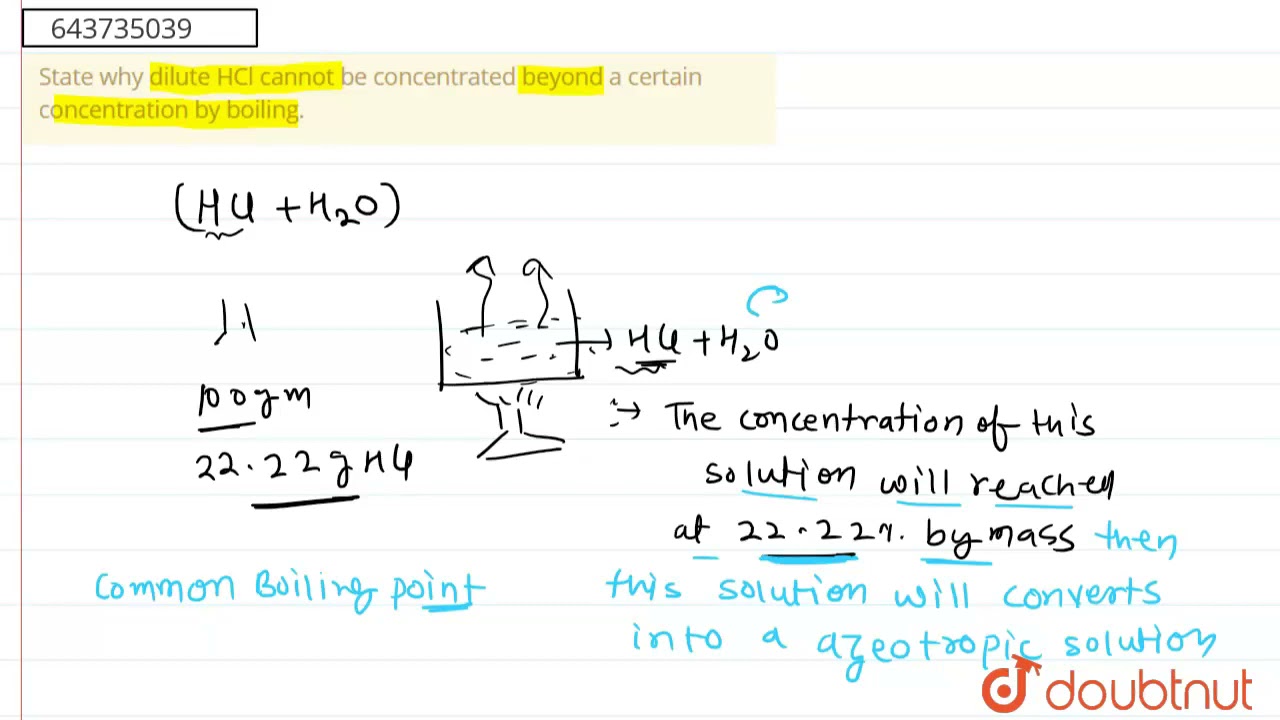 643735039
State why dilute HCl cannot be concentrated beyond a certain
concentration by boiling.
(HCl + H2O)
HCl + H2O
100gm
22.22g HCl
∴→ The concentration of this
solution will reached
at 22.22%. by mass then
Common Boiling point
this solution will converts
into a azeotropic solution
doubtnut